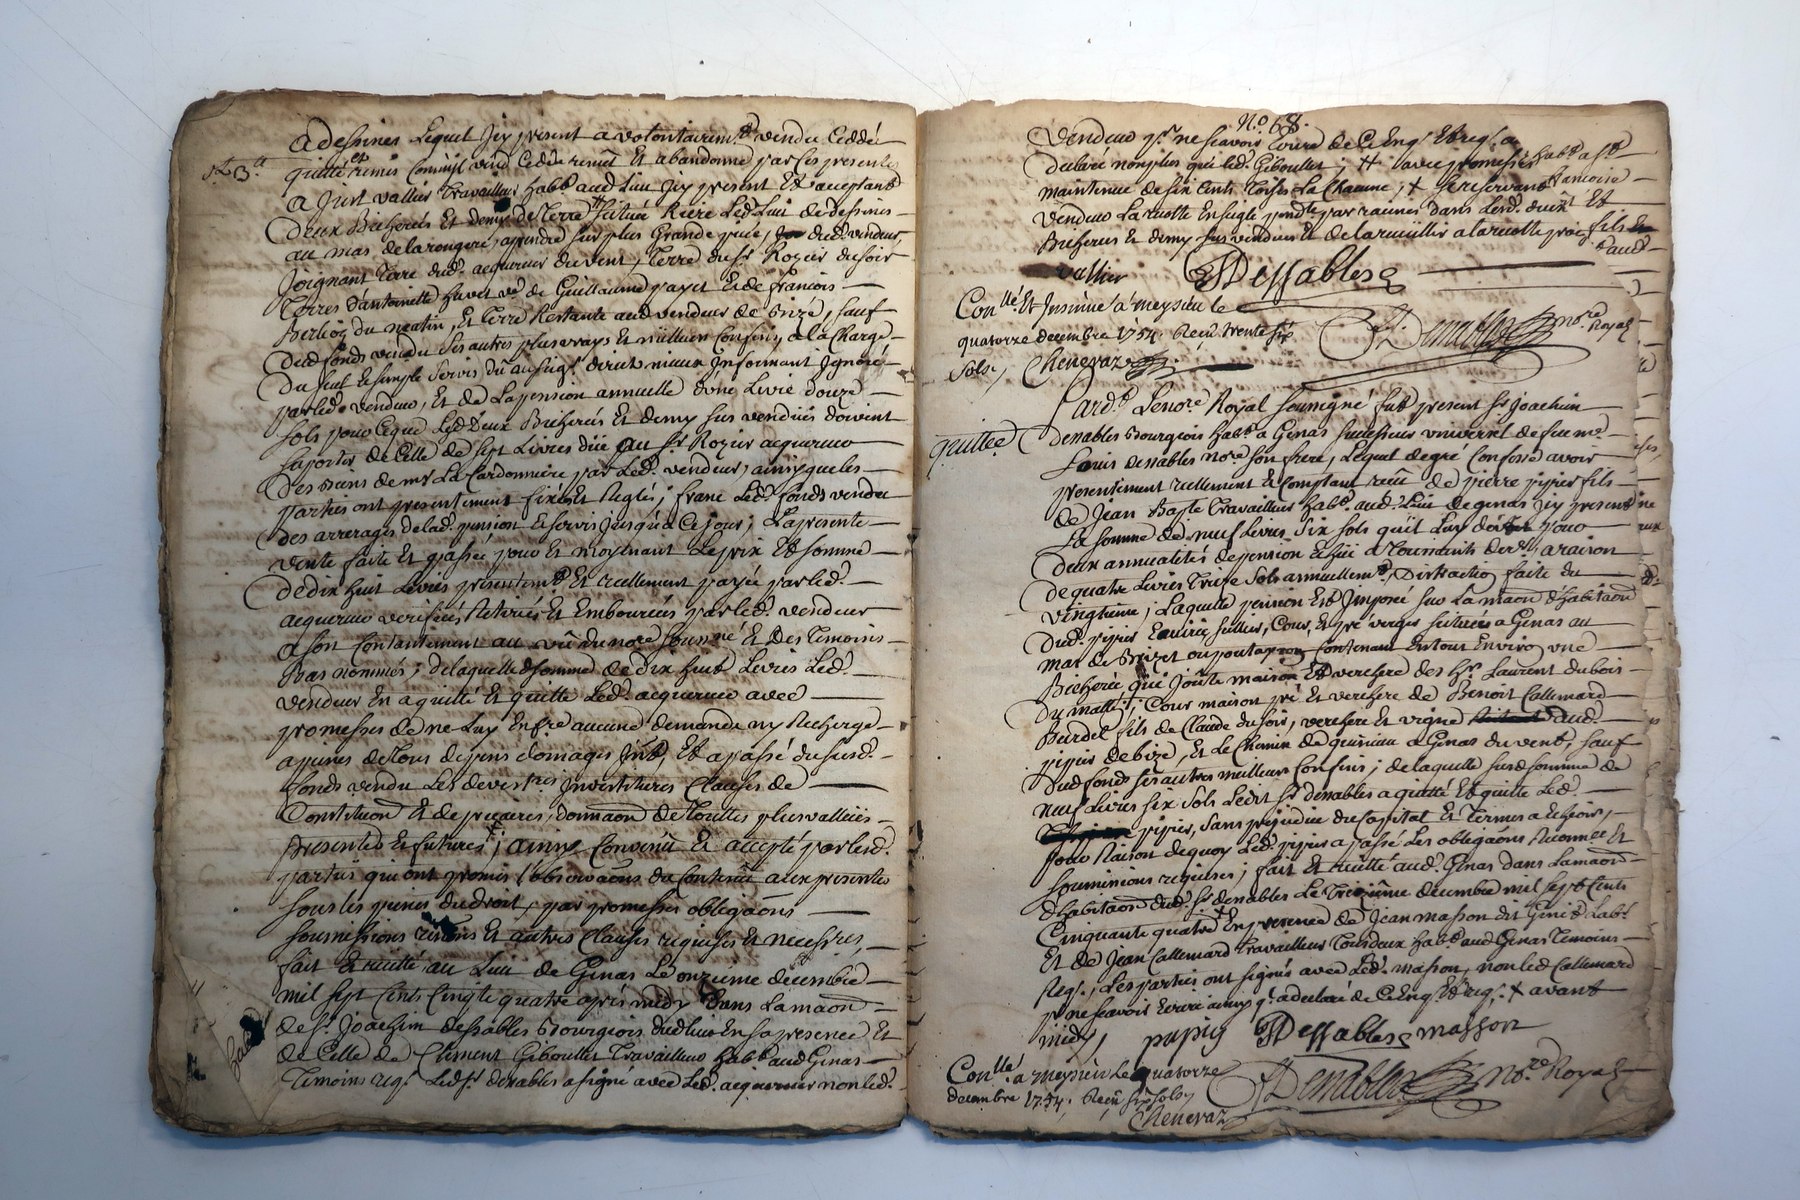 a dessines Lequel Icy present a volontairem.t vendu Ceddé
quitté et remis Comme il vend Cedde remet Et abandonne par ces presentes
a Just vallier Travailleur hab.t aud. Lieu Icy present Et acceptant
Deux Bicherées Et demy de Terre scituée Riere Led. Lieu de dessines
au mas de la rougere, a prendre sur plus Grande piece, dud. vendeur,
Joignant Terre dud. acquereur du vent, Terre du Sr Rozier du soir
Terres d'antoinette huvet v.e de Guillaume payet Et de francois
Berlioz du matin, Et terre Restante aud. vendeur de bize, sauf
Dud. fonds vendu Ses autres plus vrays Et meilleurs Confins, a la Charge
Du seul Et simple Servis dû au Seig.r direct mieux Informant Ignoré
par led. vendeur, Et de La pension annuelle d'une Livre douze
sols pour Ce que Lesd. Deux Bicherées Et demy sus vendues doivent
suporter de Celle de sept Livres düe au Sr Rozier acquereur
des biens de mr La Cardonniere par Led. vendeur, ainsy que les
parties ont presentement fixés Et Reglés; franc Led. fonds vendu
Des arrerages de lad. pension Et servis jusqu'a Ce jour; La presente
vente faite Et passée pour Et moyenant Le prix Et somme
De dix huit Livres presentem.t Et reellement payée par led.
acquereur verifiée, Retirée Et Emboursée par led. vendeur
a son Contantement au vû du no.re soussigné Et des Temoins
Bas nommés; de laquelle de somme de Dix huit Livres Led.
vendeur En a quitté Et quitte Led. acquereur avec
promesses de ne Luy En f.re aucune demande ny Recherge
a peines de Tous depens domages Int., Et a passé du susd.
fonds vendu Les devest.res Investitures Clauses de
Constitution Et de precaires, donnaon de Touttes plus vallües
presentes Et futures; ainsy Convenu Et accepté par lesd.
parties qui ont promis l'observaons du Contenu aux presentes
sous les peines du droit, par promesses obligaons
Soumissions renons Et autres Clauses requises Et necess.res,
fait Et recitté au Lieu de Genas Le onzieme decembre
mil sept Cents Cinq.te quatre apres midy dans La maon
de Sr. Joachim dessables Bourgeois dud. lieu En sa presence Et
de Celle de Climent Giboullet Travailleur hab.t aud. Genas
Temoins req.s Led. Sr. desables a signé avec Led. acquereur non led.
No. 68.
Vendeur p.r ne scavoir Ecrire de Ce Enq.s Et req.s a
Declaré non plus que led. Giboullet; avec promesses
maintenue de six Cents Toises La Chacune; + se reservant
vendeur La recolte En seigle pend.te par racines dans Lesd. deux
Bicherées Et demy sus vendües Et de la recueillir a la recolte proch.
hab.t a St
francoise
Et
fils
vallier Dessables
Con.llé Et Insinué a meysieu le
quatorze decembre 1754. Recu trente six
sols, Chenevaz
Desables no.re Royal
quittce
Pard.t Le no.re Royal Soussigné fut present Sr. Joachim
Desables Bourgeois hab.t a Genas successeur universel de feu me.
Louis desables no.re son frere, Lequel de gré Confesse avoir
presentement reellement Et Comptant recû de pierre pipier fils
de Jean Bapte Travailleur hab.t aud. Lieu de genas Icy present
La somme de neuf Livres six sols qu'il Luy devoit pour
Deux annualités de pension Echüe a Toussaints der. a raison
De quatre Livres Treize Sols annuellem.t, Distraction faite du
vingtieme; Laquelle pension Est Imposée sur La maon d'habitaon
Dud. pipier Ecurie, seullier, Cour, Et pré verger scitués a Genas au
mas de Brizet Contenant Entour Environ une
Bicherée qui Jouste maison Et verchere des hr. Laurent dubois
Du matin; Cour maison pré Et verchere de Benoit Callemard
Burdel fils de Claude du soir, verchere Et vigne aud.
pipier de bize, Et Le Chemin de quincieu a Genas du vent, sauf
Dud. fonds ses autres meilleurs Confins; de laquelle susd. somme de
neuf Livres six Sols Ledit Sr desables a quitté Et quitte Led.
pipier, sans prejudice du Capital Et Termes a Echoir,
pour Raison de quoy Led. pipier a passé Les obligaons Reconnce Et
soumissions requises; fait Et recitté aud. Genas dans La maon
d'habitaon dud. Sr desables Le Treizieme decembre mil sept Cents
Cinquante quatre En presence de Jean masson dit Hab.t
Et de Jean Callemard Travailleurs Tous deux hab.t aud. Genas Temoins
Req.s, Les parties ont signés avec Led. masson, non led. Callemard
p.r ne scavoir Ecrire ainsy q.l a declaré de Ce Enq.s Et req.s. + avant
midy, papiy Dessables masson
Con.llé a meysieu Le quatorze
decembre 1754. Recu six sols
Chenevaz
Desables no.re Royal